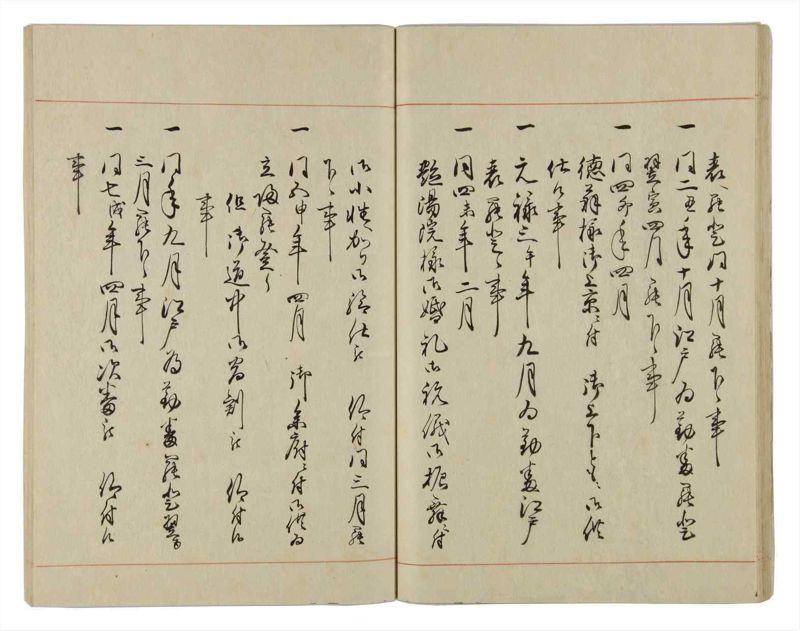 表へ罷登同十月罷下候事
一 同二丑年十月江戸為勤番罷登
翌寅四月罷下候事
一 同四卯年四月
徳翁様御上京ニ付 御上下とも御供
仕候事
一 元禄三午年九月為勤番江戸
表罷登候事
一 同四未年二月
艶陽院様御婚礼御祝儀御振舞ニ付
御小性加り御給仕被 仰付同三月罷
下候事
一 同五申年四月 御参府ニ付御供為
立帰罷登り
但御道中御宿割被 仰付候
事
一 同年九月江戸為勤番罷登翌年
三月罷下候事
一 同七戌年四月御次番被 仰付候
事